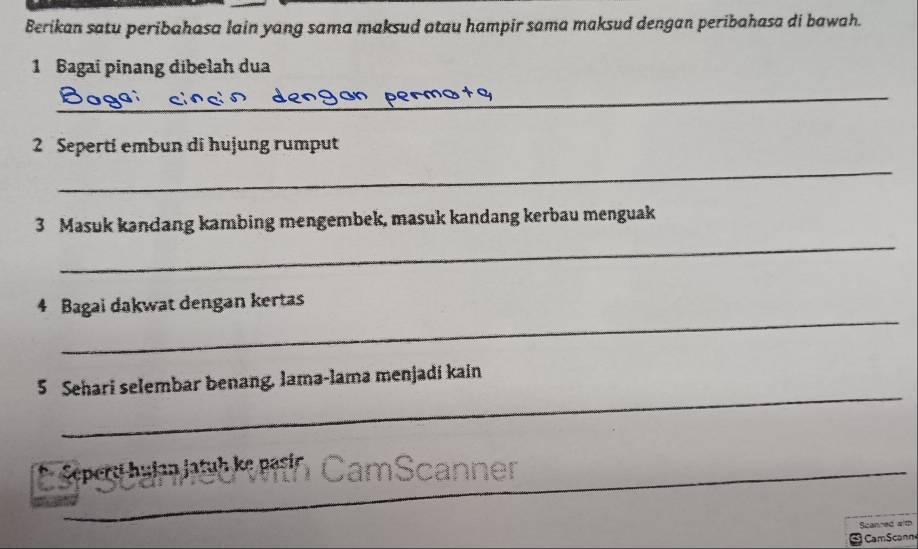 Berikan satu peribahasa lain yang sama maksud atau hampir sama maksud dengan peribahasa di bawah.
1 Bagai pinang dibelah dua
Bagai cincin dengan permata
2 Seperti embun di hujung rumput
3 Masuk kandang kambing mengembek, masuk kandang kerbau menguak
4 Bagai dakwat dengan kertas
5 Sehari selembar benang, lama-lama menjadi kain
Seperti hujan jatuh ke pasir
Scanned with CamScanner
Scanned with
CS CamScann